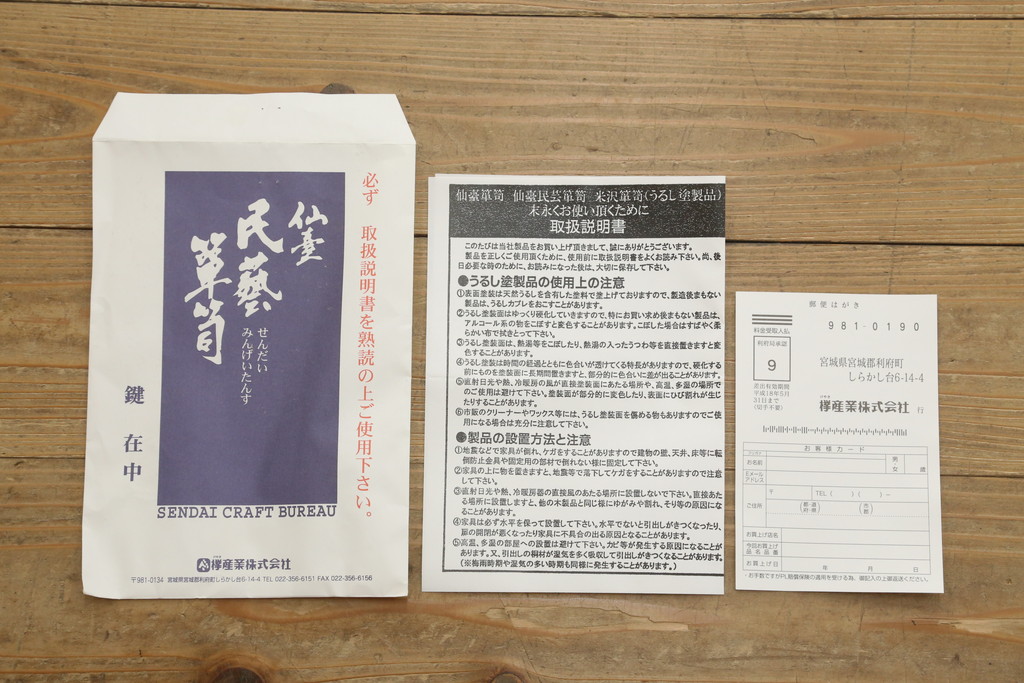 必ず 取扱説明書を熟読の上ご使用下さい。
仙臺
民藝
箪笥
せんだい
みんげいたんす
鍵在中
SENDAI CRAFT BUREAU
欅産業株式会社
〒981-0134 宮城県宮城郡利府町しらかし台6-14-4 TEL 022-356-6151 FAX 022-356-6156
仙臺箪笥 仙臺民芸箪笥 米沢箪笥(うるし塗製品)
末永くお使い頂くために
取扱説明書
このたびは当社製品をお買い上げ頂きまして、誠にありがとうございます。
製品を正しくご使用頂くために、使用前に取扱説明書をよくお読み下さい。尚、後
日必要な時のために、お読みになった後は、大切に保存して下さい。
●うるし塗製品の使用上の注意
①表面塗装は天然うるしを含有した塗料で塗上げておりますので、製造後まもない
製品は、うるしカブレをおこすことがあります。
②うるし塗装面はゆっくり硬化していきますので、特にお買い求め後まもない製品は、
アルコール系の物をこぼすと変色することがあります。こぼした場合はすばやく柔
らかい布で拭きとって下さい。
③うるし塗装面は、熱湯等をこぼしたり、熱湯の入ったうつわ等を直接置きますと変
色することがあります。
④うるし塗装は時間の経過とともに色合いが透けてくる特長がありますので、硬化する
前にものを塗装面に長期間置きますと、部分的に色合いに差が出ることがあります。
⑤直射日光や熱、冷暖房の風が直接塗装面にあたる場所や、高温、多湿の場所で
のご使用は避けて下さい。塗装面が部分的に変色したり、表面にひび割れが生じ
たりすることがあります。
⑥市販のクリーナーやワックス等には、うるし塗装面を傷める物もありますのでご使
用になる場合は充分に注意して下さい。
●製品の設置方法と注意
①地震などで家具が倒れ、ケガをすることがありますので建物の壁、天井、床等に転
倒防止金具や固定用の部材で倒れない様に固定して下さい。
②家具の上に物を置きますと、地震等で落下してケガをすることがありますので注意
して下さい。
③直射日光や熱、冷暖房器の直接風のあたる場所に設置しないで下さい。直接あた
る場所に設置しますと、他の木製品と同じ様にゆがみや割れ、そり等の原因になる
ことがあります。
④家具は必ず水平を保って設置して下さい。水平でないと引出しがきつくなったり、
扉の開閉が悪くなったり家具に不具合の出る原因となることがあります。
⑤高温、多湿の部屋への設置は避けて下さい。カビ等が発生する原因になることが
あります。又、引出しの桐材が湿気を多く吸収して引出しがきつくなることがあります。
(※梅雨時期や湿気の多い時期も同様に発生することがあります。)
郵便はがき
料金受取人払
利府局承認
9
差出有効期間
平成18年5月
31日まで
(切手不要)
981-0190
宮城県宮城郡利府町
しらかし台6-14-4
欅産業株式会社 行
お客様カード
お名前
男
女
歳
Eメール
アドレス
ご住所
〒
TEL ( ) ( ) ー
都・道
府・県
市
郡
お買上げ店名
今回お買上げ
品名品番
お買上げ日
年 月 日
・お手数ですがPL賠償保険の適用を受ける為、御記入の上御返送ください。